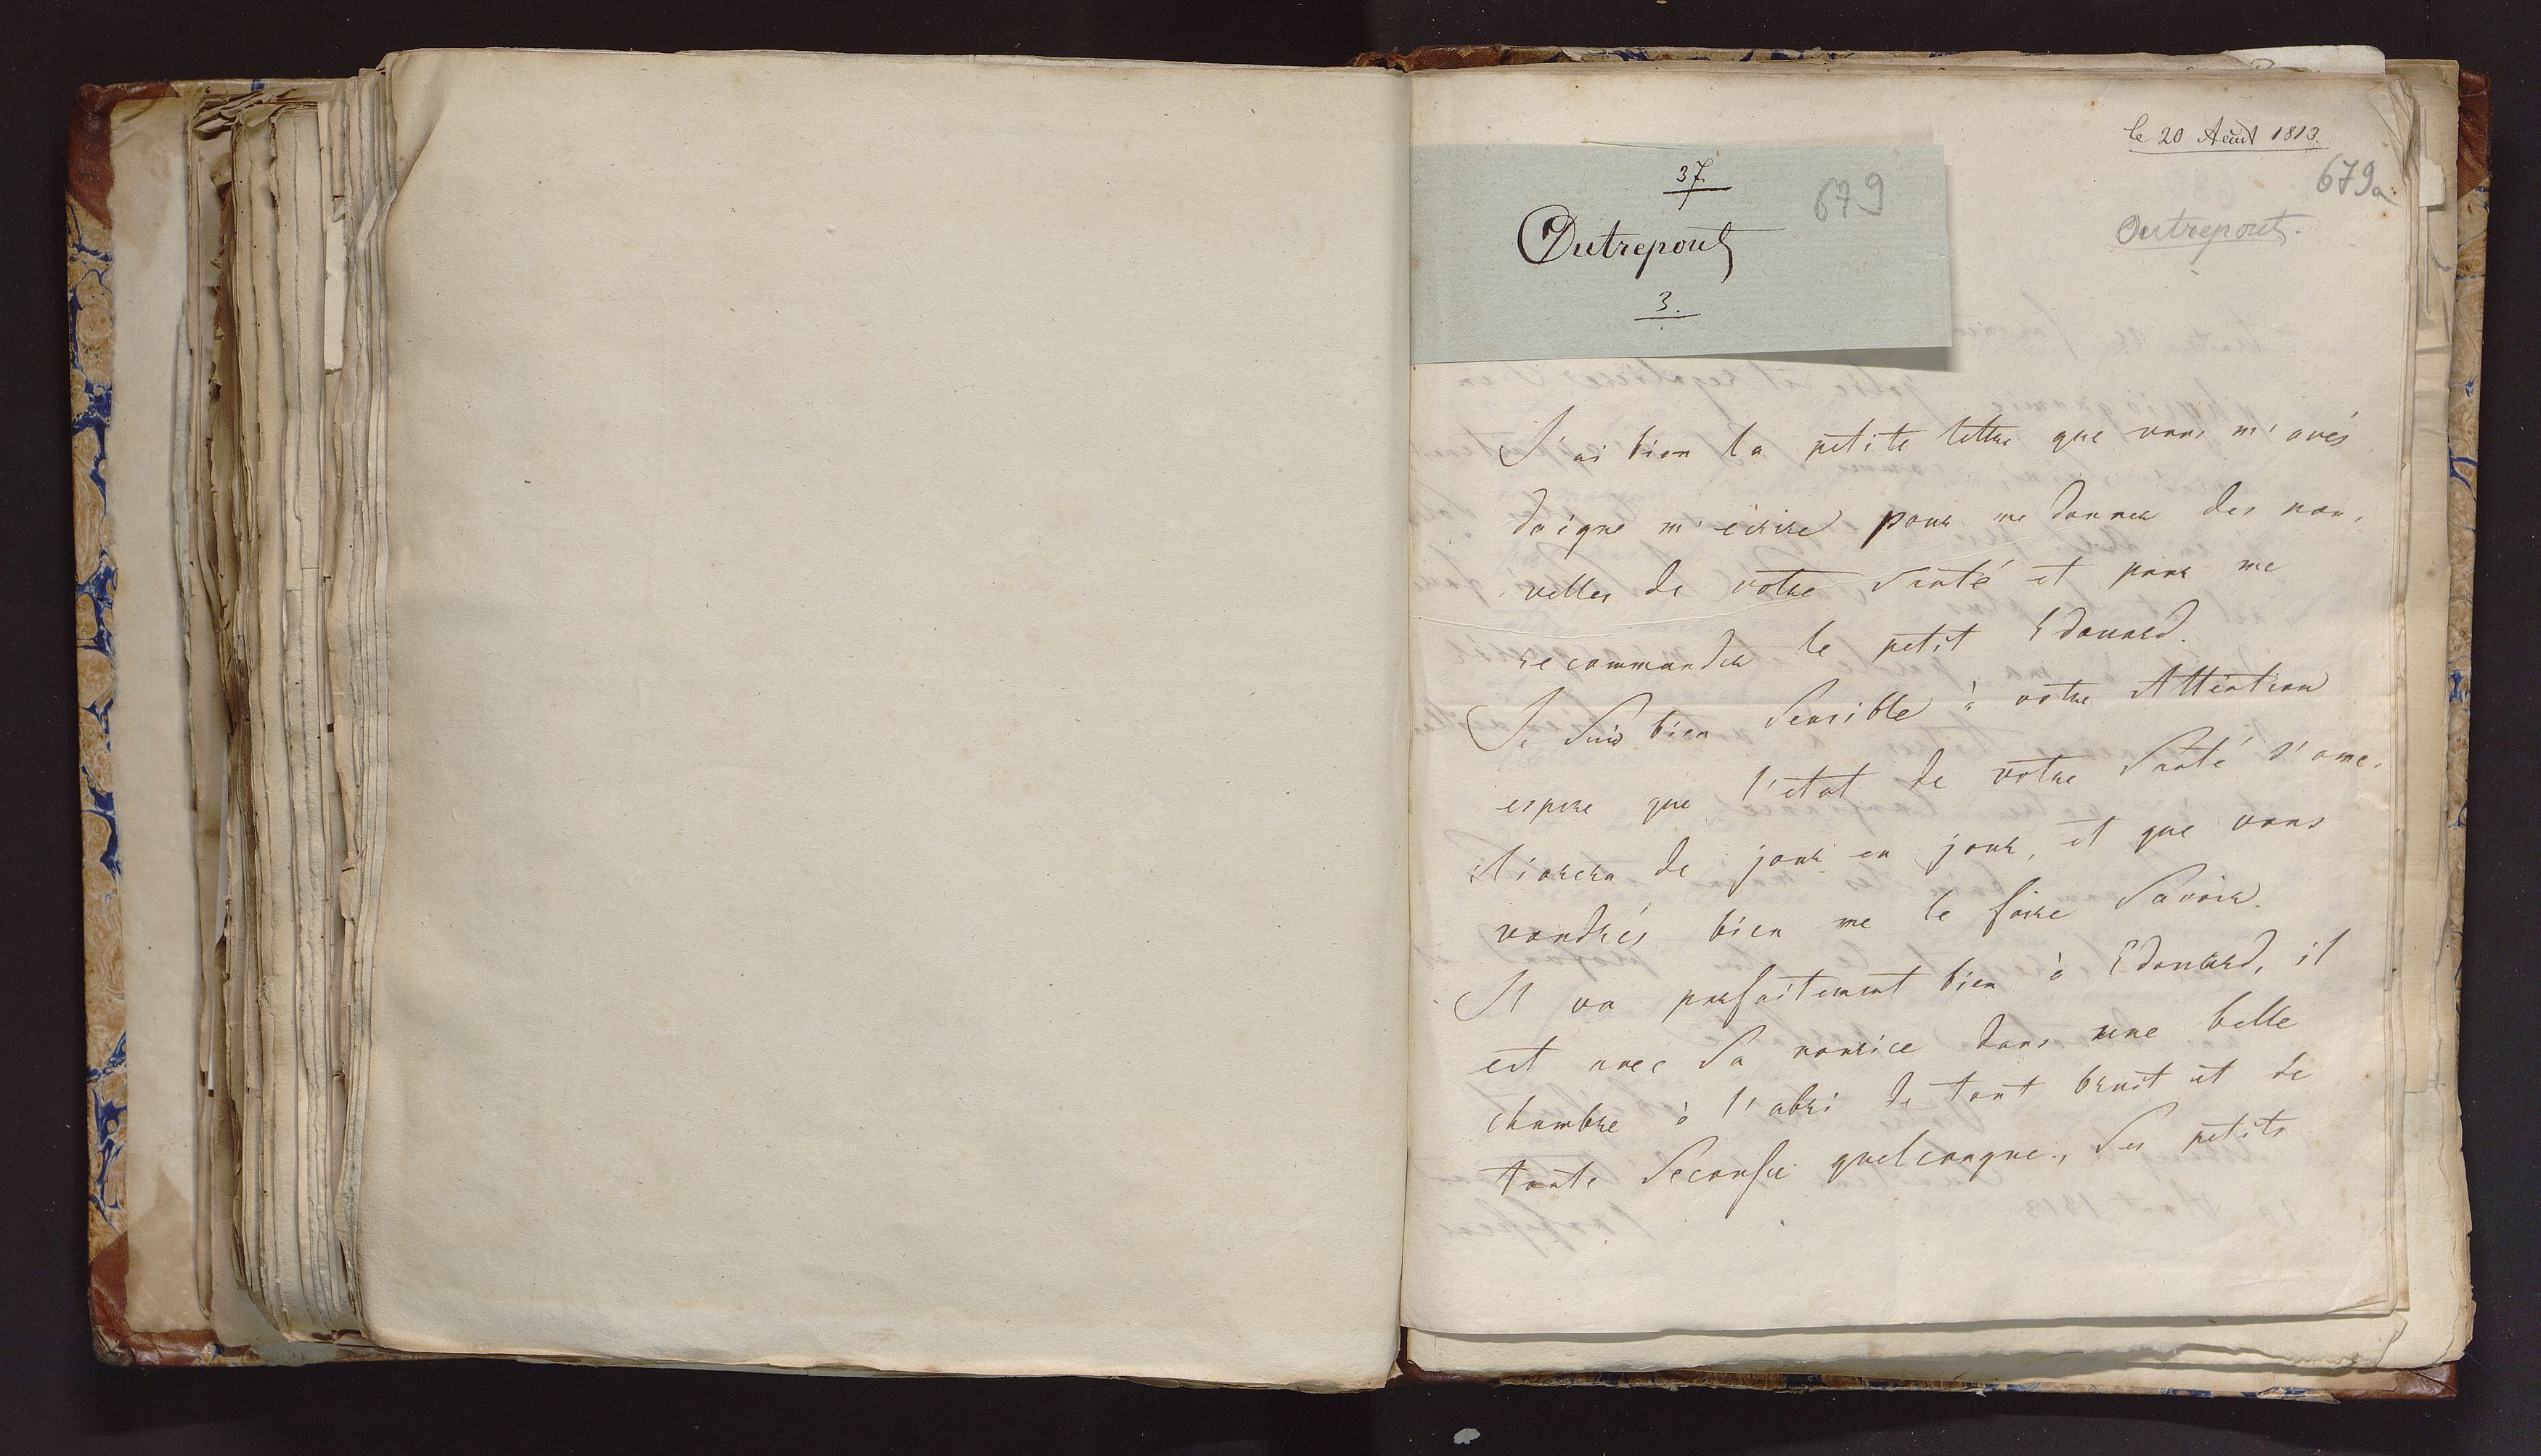 37.
Dutrepont
3.
679
le 20 Août 1813.
679a
Outrepont.
J'ai bien la petite lettre que vous m'avés
daigne m'écrire pour me donner des nou,
velles de votre Santé et pour me
recommander le petit Edouard.
Je Suis bien Sensible à votre Attention
espere que l'etat de votre Santé s'ame,
liorera de jour en jour, et que vous
voudrés bien me le faire Savoir.
Il va parfaitement bien à Edouard, il
est avec Sa nourice dans une belle
chambre à l'abri de tout bruit et de
toute quelconque, Ses petits